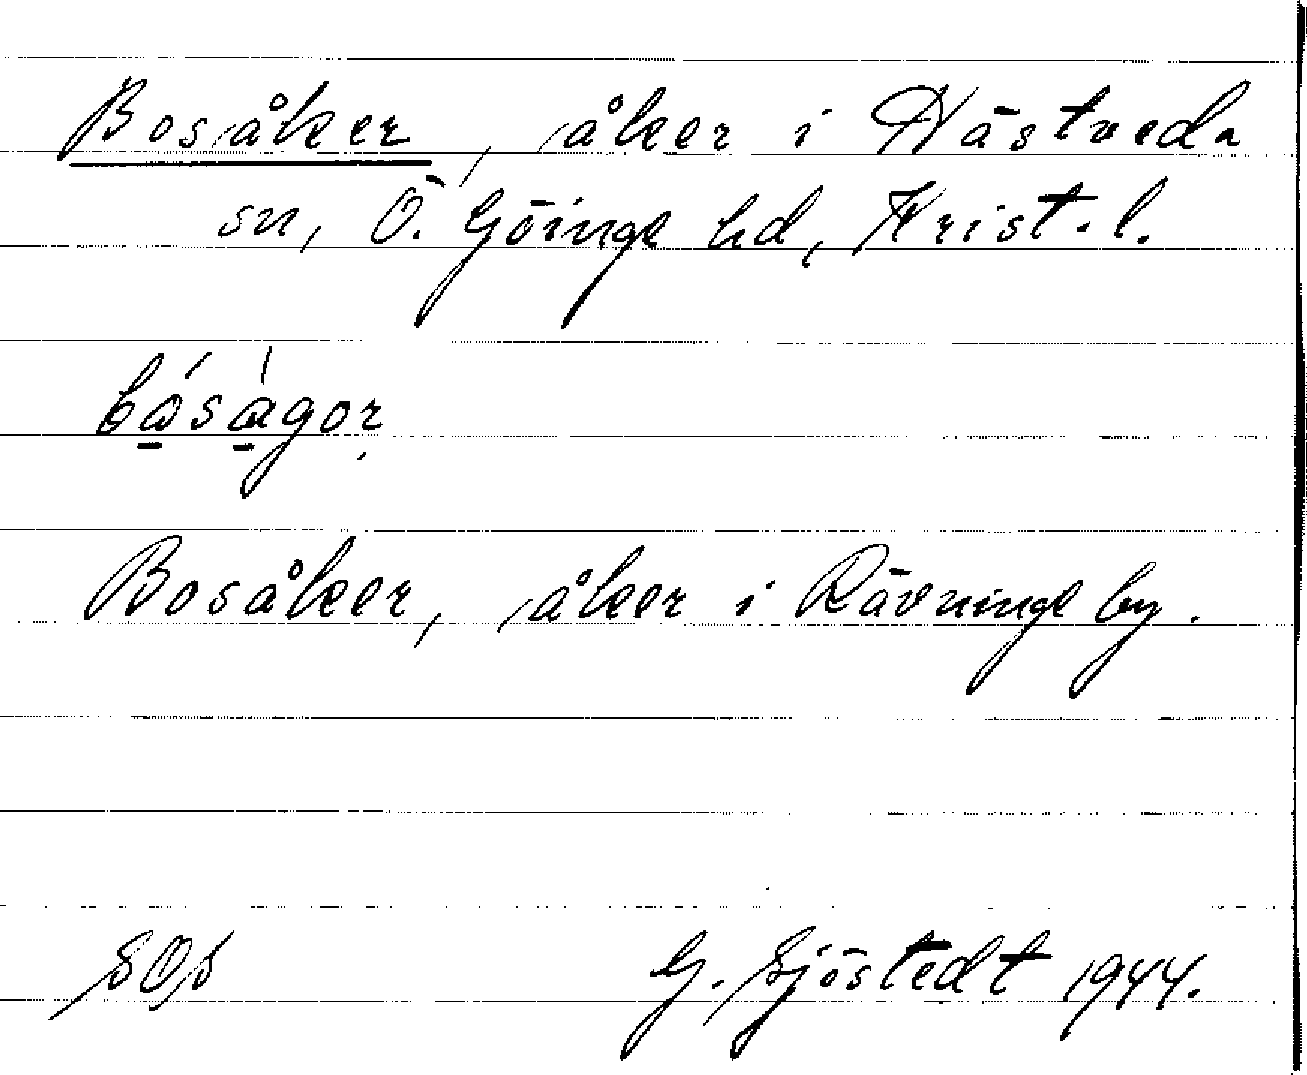 Bosåker, åker i Hästveda
sn, Ö. Göinge hd, Krist. l.
bo̱ʹsa̱ˋgor
Bosåker, åker i Rävninge by.
SOS G. Sjöstedt 1944.